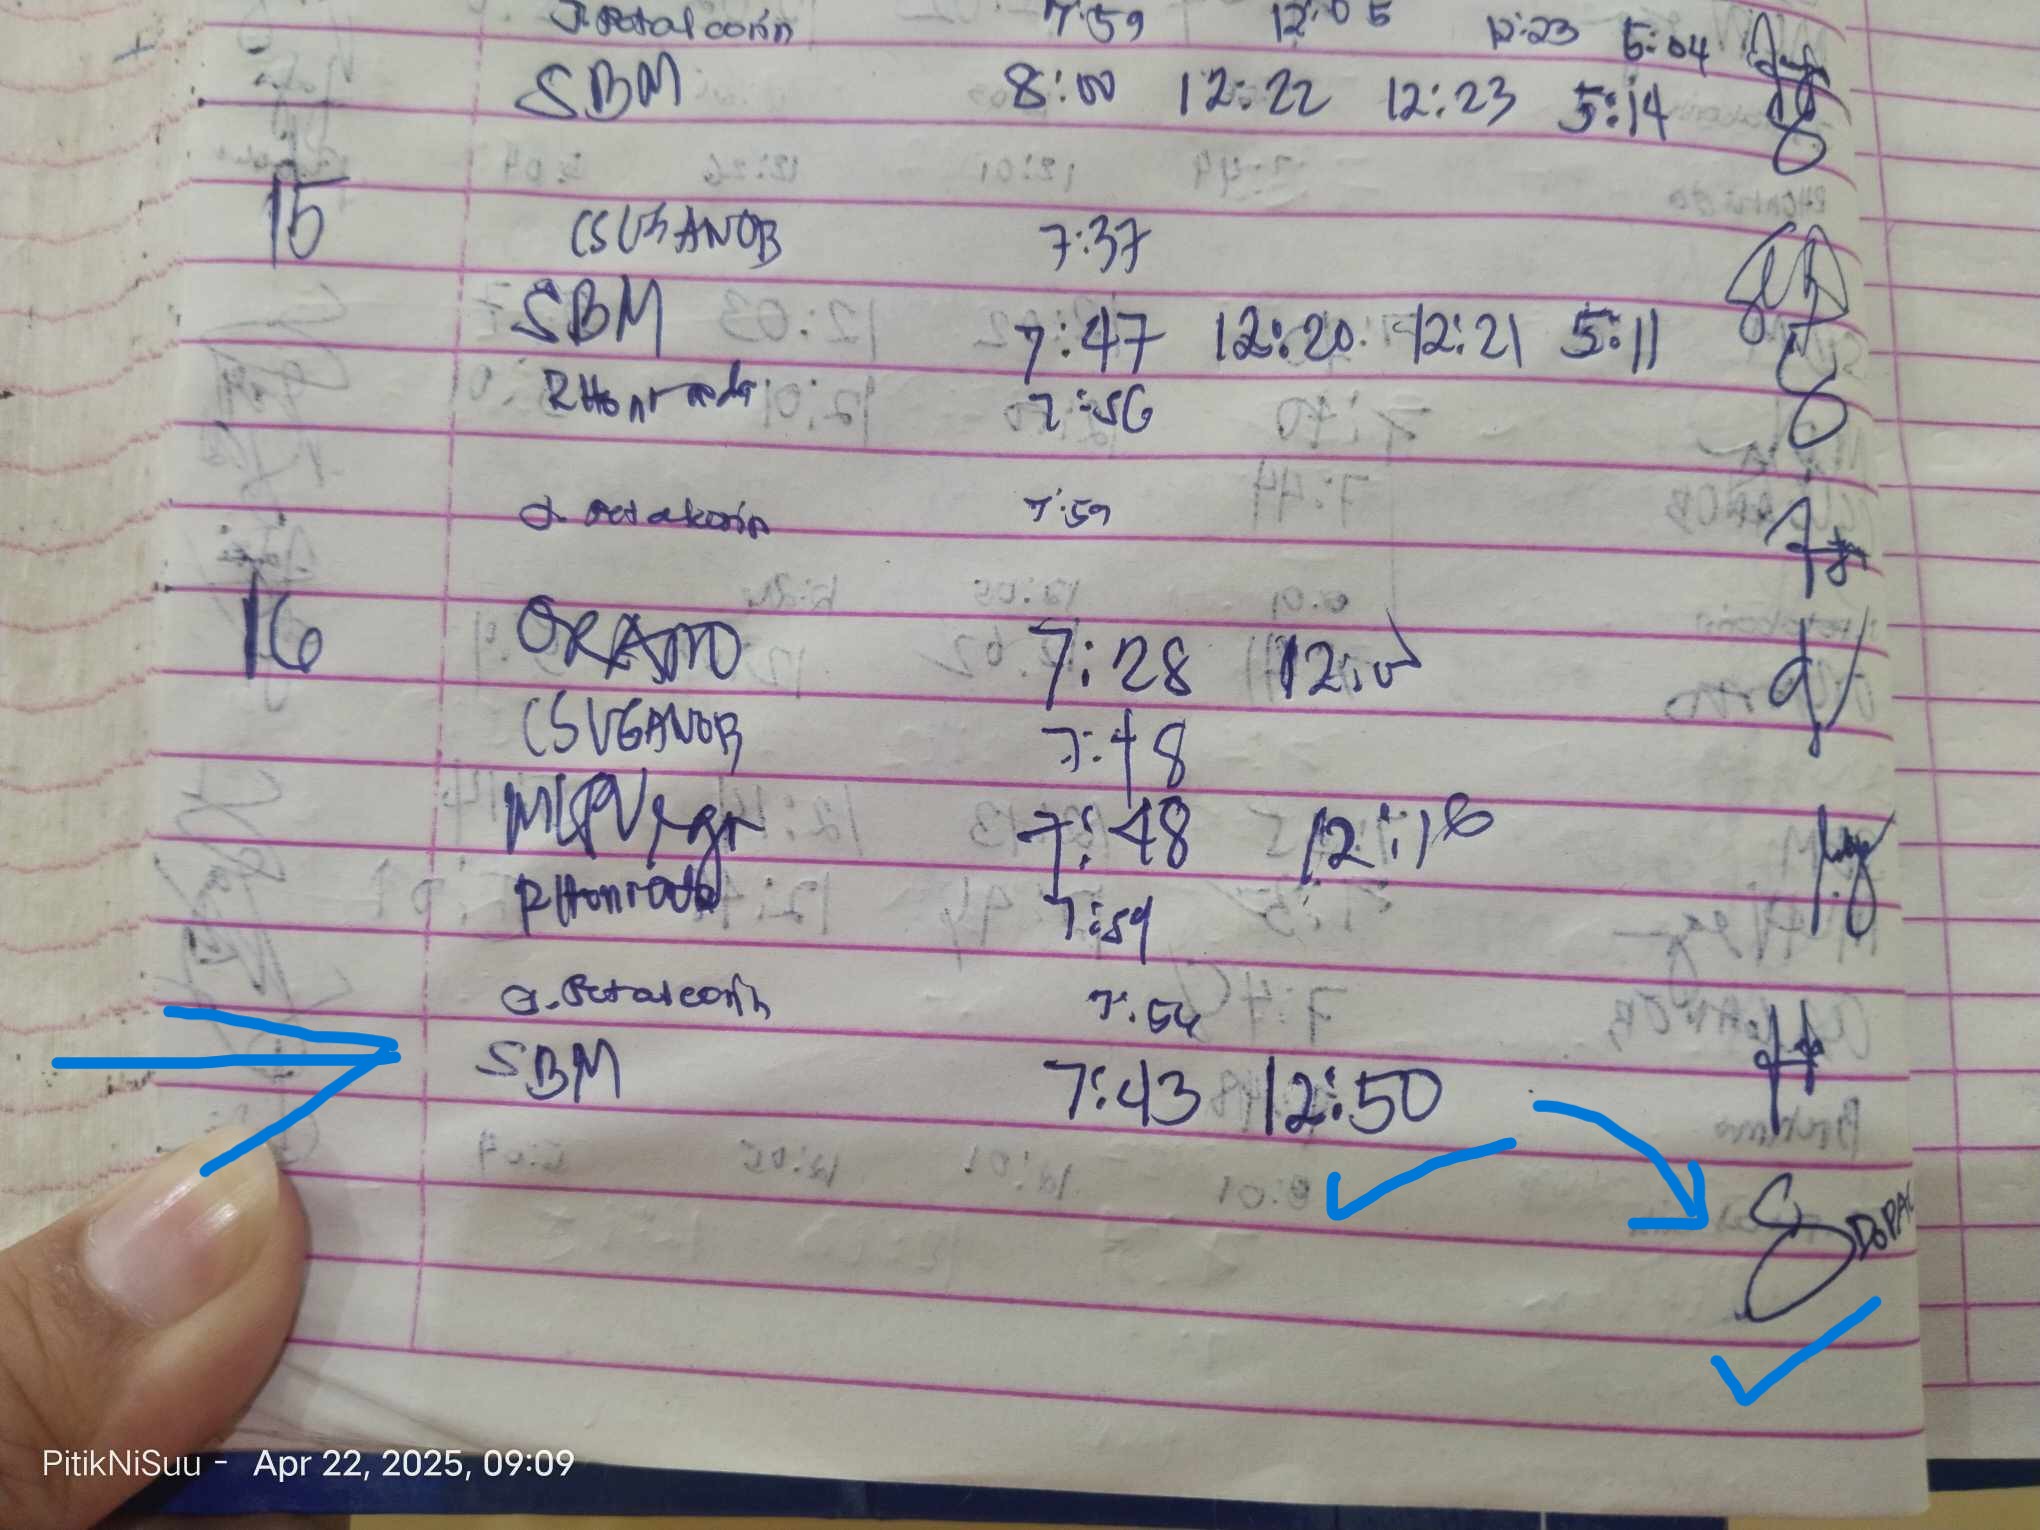 J. Petalcorin 7:59 12:05 12:23 5:04
SBM 8:00 12:22 12:23 5:14
15
CSUGANOB 7:37
SBM 7:47 12:20 12:21 5:11
RHonrada 7:56
J. Petalcorin 7:59
16 ORANO 7:28 12:
CSUGANOB 7:48
7:48 12:18
RHonrada 7:59
J. Petalcorin 7:54
SBM 7:43 12:50
PitikNiSuu - Apr 22, 2025, 09:09